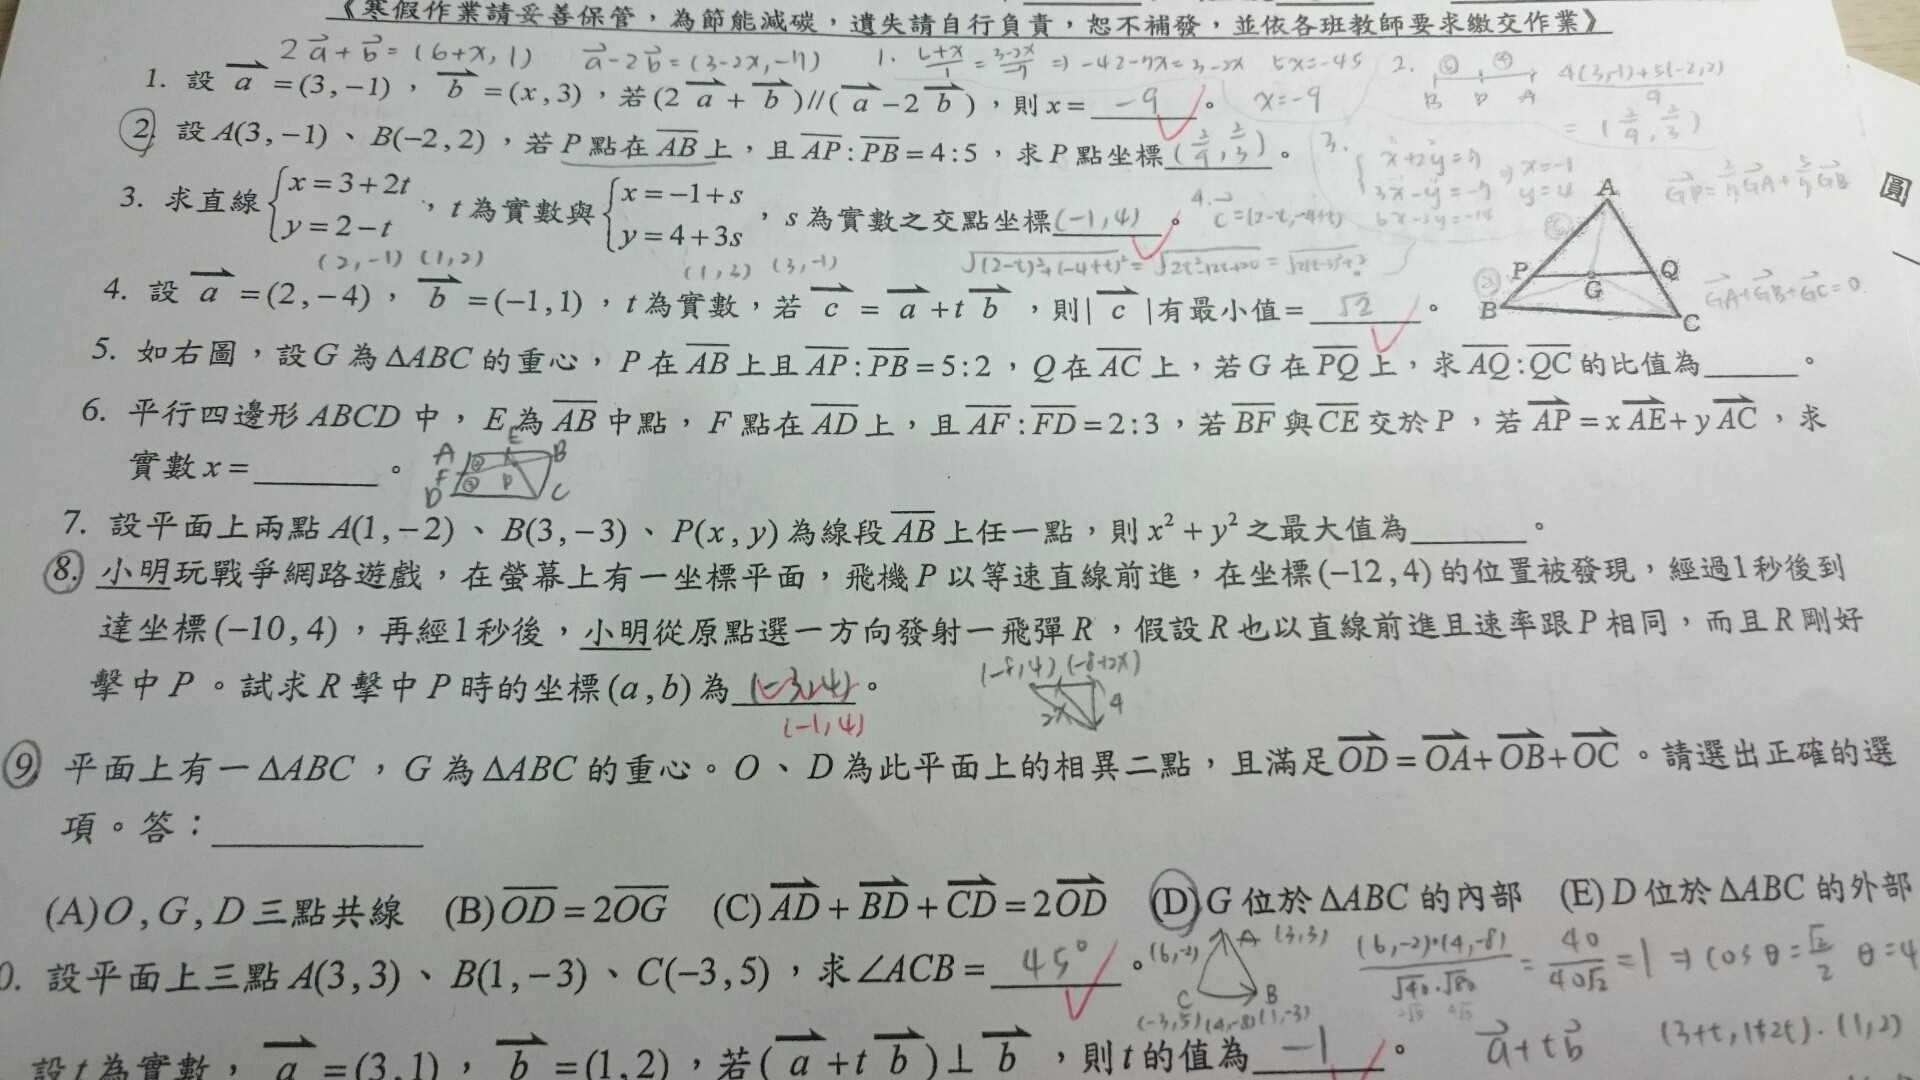 《寒假作業請妥善保管，為節能減碳，遺失請自行負責，恕不補發，並依各班教師要求繳交作業》
2a+b=(6+x,1) a-2b=(3-2x,-7) 1. (6+x)/1=(3-2x)/-7 ⇒ -42-7x=3-2x 5x=-45 x=-9
1. 設 a=(3,-1)，b=(x,3)，若(2a+b)//(a-2b)，則x= -9。
2. B P A (4(3,-1)+5(-2,2))/9 = (2/9, 2/3)
2. 設A(3,-1)、B(-2,2)，若P點在AB上，且AP:PB=4:5，求P點坐標(2/9, 2/3)。
3. x+2y=7 3x-y=-7 6x-2y=-14 ⇒ x=-1 y=4
3. 求直線{x=3+2t y=2-t，t為實數與{x=-1+s y=4+3s，s為實數之交點坐標(-1,4)。
(2,-1) (1,2) (1,3) (3,-1)
4. c=(2-t,-4+t)
4. 設 a=(2,-4)，b=(-1,1)，t為實數，若c=a+tb，則|c|有最小值= √2。
GP=2/7GA+5/7GB
A P Q G B C
GA+GB+GC=0
5. 如右圖，設G為ΔABC的重心，P在AB上且AP:PB=5:2，Q在AC上，若G在PQ上，求AQ:QC的比值為______。
6. 平行四邊形ABCD中，E為AB中點，F點在AD上，且AF:FD=2:3，若BF與CE交於P，若AP=xAE+yAC，求
實數x=______。
A E B F P D C
7. 設平面上兩點A(1,-2)、B(3,-3)、P(x,y)為線段AB上任一點，則x²+y²之最大值為______。
8. 小明玩戰爭網路遊戲，在螢幕上有一坐標平面，飛機P以等速直線前進，在坐標(-12,4)的位置被發現，經過1秒後到
達坐標(-10,4)，再經1秒後，小明從原點選一方向發射一飛彈R，假設R也以直線前進且速率跟P相同，而且R剛好
擊中P。試求R擊中P時的坐標(a,b)為(-3,4)。
(-1,4)
(-8,4) (-8+2x) 2x 4
9. 平面上有一ΔABC，G為ΔABC的重心。O、D為此平面上的相異二點，且滿足OD=OA+OB+OC。請選出正確的選
項。答：______
(A)O,G,D三點共線 (B)OD=2OG (C)AD+BD+CD=2OD (D)G位於ΔABC的內部 (E)D位於ΔABC的外部
0. 設平面上三點A(3,3)、B(1,-3)、C(-3,5)，求∠ACB= 45°。
(6,-2) A (3,3) C B (-3,5) (4,-8) (1,-3)
(6,-2)·(4,-8)/√40·√80 = 40/40√2 =1 ⇒ cosθ=√2/2 θ=4
設t為實數，a=(3,1)，b=(1,2)，若(a+tb)⊥b，則t的值為 -1。
a+tb (3+t,1+2t)·(1,2)
圓